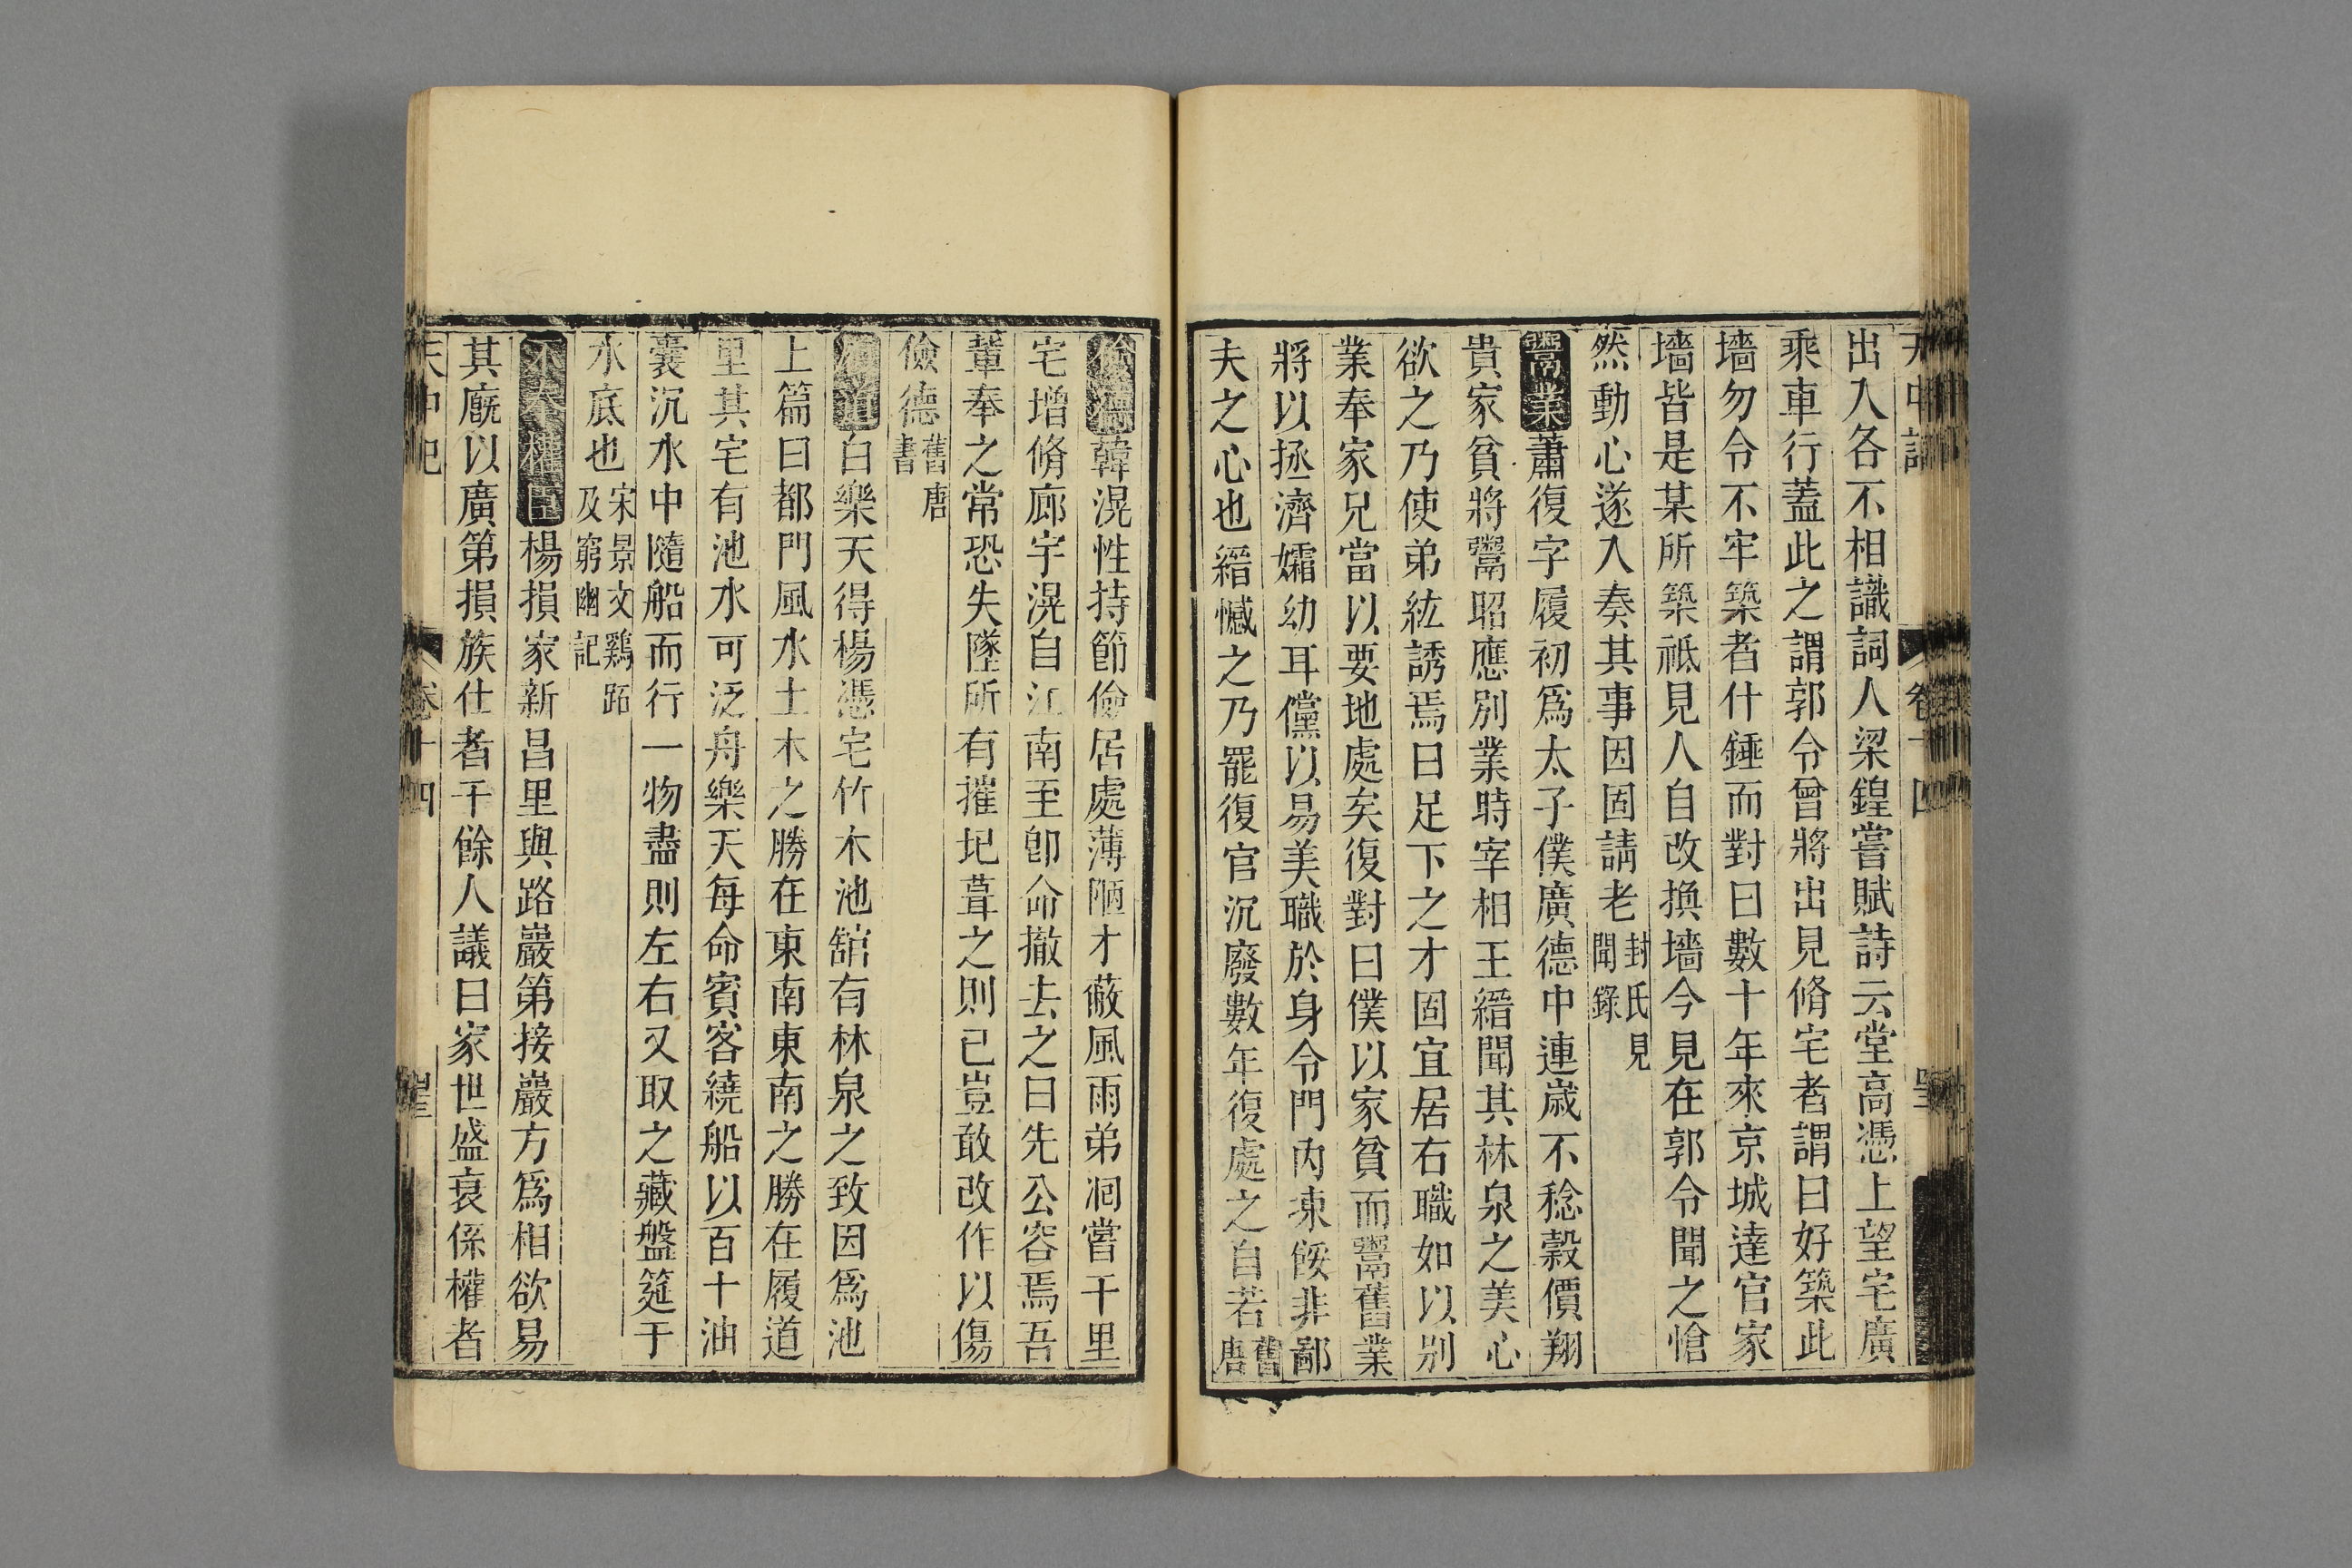 天中記
卷十四
出入各不相識詞人梁鍠嘗賦詩云堂高憑上望宅廣
乘車行蓋此之謂郭令曾將出見脩宅者謂曰好築此
墻勿令不牢築者什錘而對曰數十年來京城達官家
墻皆是某所築祗見人自改換墻今見在郭令聞之愴
然動心遂入奏其事因固請老封氏見聞錄
鬻業蕭復字履初爲太子僕廣德中連歲不稔穀價翔
貴家貧將鬻昭應別業時宰相王縉聞其林泉之美心
欲之乃使弟紘誘焉曰足下之才固宜居右職如以别
業奉家兄當以要地處矣復對曰僕以家貧而鬻舊業
將以拯濟孀幼耳儻以易美職於身令門內凍餒非鄙
夫之心也縉憾之乃罷復官沉廢數年復處之自若舊唐
儉德韓滉性持節儉居處薄陋才蔽風雨弟洄嘗于里
宅增脩廊宇滉自江南至卽命撤去之曰先公容焉吾
輩奉之常恐失墜所有摧圮葺之則已豈敢改作以傷
儉德舊唐書
履道白樂天得楊憑宅竹木池舘有林泉之致因爲池
上篇曰都門風水土木之勝在東南東南之勝在履道
里其宅有池水可泛舟樂天每命賓客繞船以百十油
囊沉水中隨船而行一物盡則左右又取之藏盤筵于
水底也宋景文鷄跖及窮幽記
不奉權臣楊損家新昌里與路巖第接巖方爲相欲易
其廐以廣第損族仕者千餘人議曰家世盛衰係權者
天中記
卷十四